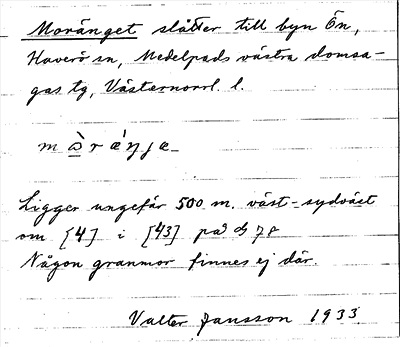 Moränget slåtter till byn Ön,
Haverö sn, Medelpads västra domsa-
gas tg, Västernorrl. l.
Ligger ungefär 500 m. väst-sydväst
om [4] i [43] på
Någon granmor finnes ej där.
Valter Jansson 1933.